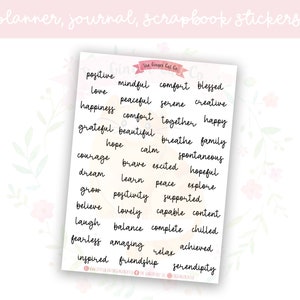 planner, journal, scrapbook stickers
The Ginger Cat Co.
positive mindful comfort blessed
love peaceful serene creative
happiness comfort together happy
grateful beautiful breathe family
hope calm spontaneous
courage brave excited hopeful
dream learn peace explore
grow positivity supported
believe lovely capable content
laugh balance complete chilled
fearless amazing relax achieved
inspired friendship serendipity